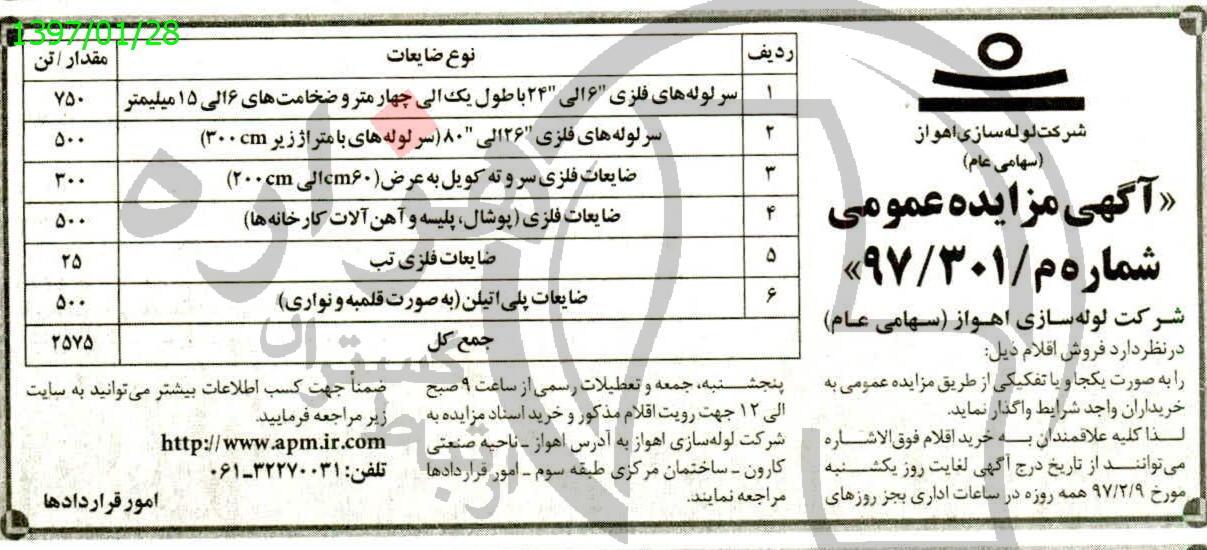 1397/01/28
شرکت لوله سازی اهواز
(سهامی عام)
«آگهی مزایده عمومی
شماره م/۹۷/۳۰۱»
شرکت لوله سازی اهواز (سهامی عام)
درنظر دارد فروش اقلام ذیل:
را به صورت یکجا و یا تفکیکی از طریق مزایده عمومی به
خریداران واجد شرایط واگذار نماید.
لذا کلیه علاقمندان به خرید اقلام فوق الاشاره
می توانند از تاریخ درج آگهی لغایت روز یکشنبه
مورخ ۹۷/۲/۹ همه روزه در ساعات اداری بجز روزهای
ردیف نوع ضایعات مقدار / تن
۱ سر لوله های فلزی "۶ الی "۲۴ با طول یک الی چهار متر و ضخامت های ۶ الی ۱۵ میلیمتر ۷۵۰
۲ سر لوله های فلزی "۲۶ الی "۸۰ (سر لوله های با متراژ زیر ۳۰۰cm) ۵۰۰
۳ ضایعات فلزی سر و ته کویل به عرض (۶۰cm الی ۲۰۰cm) ۳۰۰
۴ ضایعات فلزی (پوشال، پلیسه و آهن آلات کارخانه ها) ۵۰۰
۵ ضایعات فلزی تب ۲۵
۶ ضایعات پلی اتیلن (به صورت قلمبه و نواری) ۵۰۰
جمع کل ۲۵۷۵
پنجشنبه، جمعه و تعطیلات رسمی از ساعت ۹ صبح
الی ۱۲ جهت رویت اقلام مذکور و خرید اسناد مزایده به
شرکت لوله سازی اهواز به آدرس اهواز ـ ناحیه صنعتی
کارون ـ ساختمان مرکزی طبقه سوم ـ امور قراردادها
مراجعه نمایند.
ضمناً جهت کسب اطلاعات بیشتر می توانید به سایت
زیر مراجعه فرمایید.
http://www.apm.ir.com
تلفن: ۳۲۲۷۰۰۳۱ـ۰۶۱
امور قراردادها
هزاره